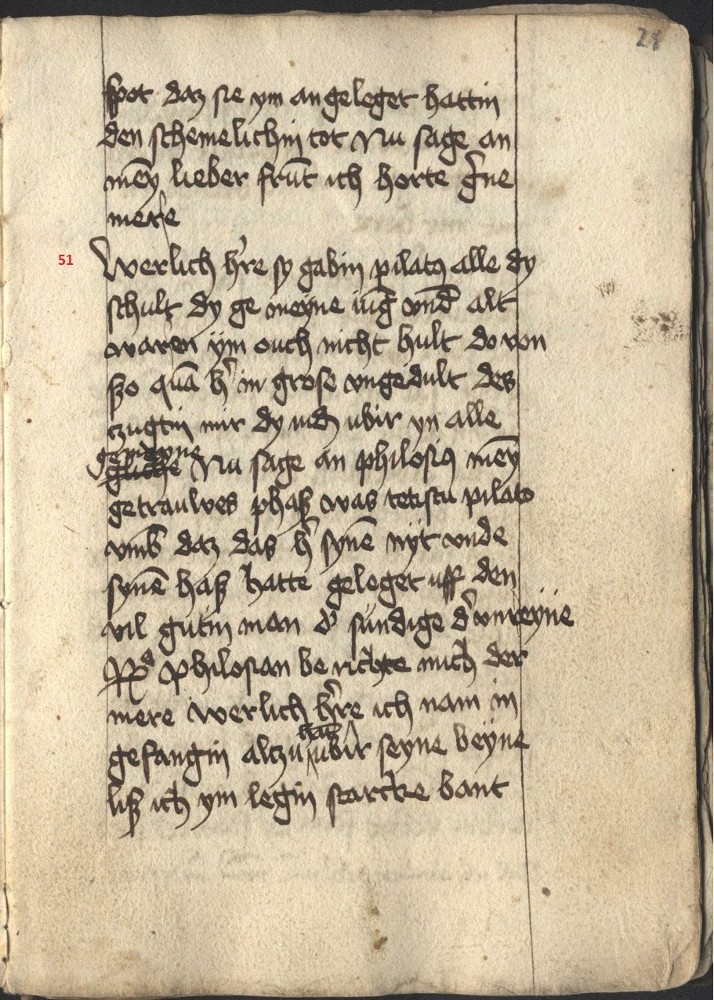 28
spot daz sie ym an geleget hattin
den schemelichin tot Nu sage an
mey̅ lieber fru̅t ich horte g̛ne
mere
51
Werlich h̛re sy gabin pilato alle dy
schult dy ge meyne iu̅g vnd̛ alt
waren ym ouch nicht hult do von
szo qua̅ h̛ in grose vngedult des
czugtin mir dy iud̛ ubir yn alle
gemeyne
Nu sage an philosio mey̅
getrauwes was pilato
vmb daz das h̛ syne̅ nyt vnde
syne̅ hasz hatte geleget uff den
vil gutin man d̛ sundige d̛ vnreyne
philosian be richte mich der
mere werlich h̛re ich nam in
gefangin alczu hant ubir seyne beyne
lisz ich ym legin starcke bant